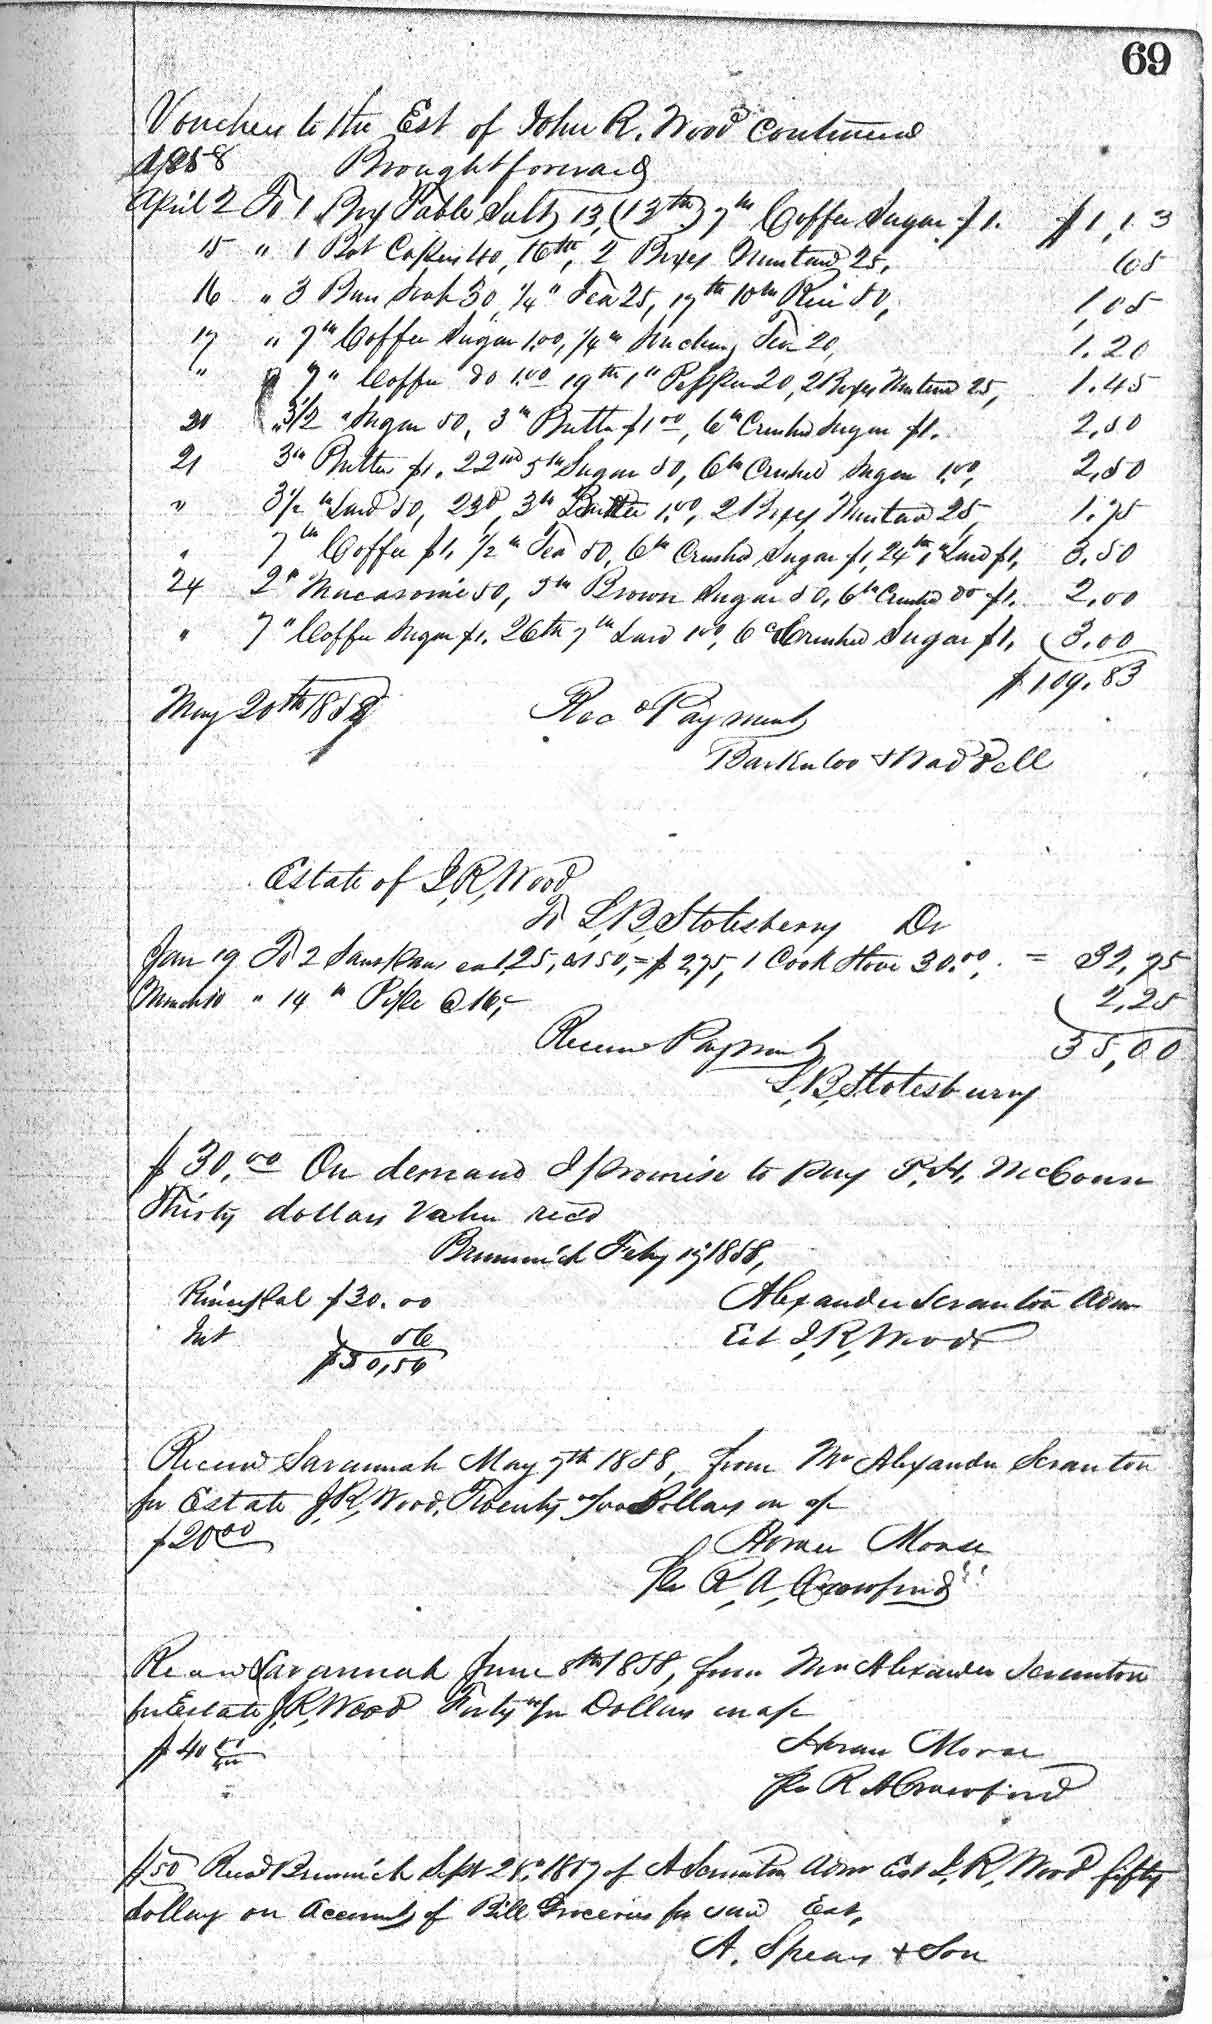 69
Vouchers to the Est of John R. Wood continued
1858 Brought forward
April 2 To 1 Box Table Salt 13, (13th) 7 lb Coffee Sugar $1. $1,13
15 " 1 Bot Capers 40, 16th, 2 Boxes Mustard 25, 65
16 " 3 Bars Soap 30, 1/4 " Tea 25, 17th 10 lb Rice 50, 1,05
17 " 7 lb Coffee Sugar 1.00, 1/4 lb Tea 20, 1.20
" 7 " Coffee do 1.00 19th 1 " Pepper 20, 2 Boxes Mustard 25, 1.45
20 " 3 1/2 " Sugar 50, 3 lb Butter $1.00, 6 lb Crushed Sugar $1. 2,50
21 3 lb Butter $1. 22nd 5 lb Sugar 50, 6 lb Crushed Sugar 1.00, 2,50
" 3 1/2 lb Lard 50, 23d, 3 lb Butter 1.00, 2 Boxes Mustard 25, 1.75
" 7 lb Coffee $1, 1/2 lb Tea 50, 6 lb Crushed Sugar $1, 24th, " Lard $1, 3.50
24 2 " Macaroni 50, 5 lb Brown Sugar 50, 6 lb Crushed do $1. 2,00
" 7 " Coffee Sugar $1. 26th 7 lb Lard 1.00, 6 Crushed Sugar $1, 3.00
$109.83
May 20th 1858 Rec d Payment
Barkuloo & Waddell
Estate of J, R, Wood
To L, B, Stotesberry Dr
Jan 19 To 2 Saus Pans ea 1,25, 1 50, = $2,75, 1 Cook Stove 30.00, = 32,75
March 10 " 14 " Pipe @ 16, 2,25
Receivd Payment 35,00
L, B, Stotesbury
$30,00 On demand I promise to pay P. H, McConn
Thirty dollars Value recd
Brunswick Feby 17 1858,
Principal $30.00 Alexander Scranton Admr
Int 56 Est J, R, Wood
$30,56
Received Savannah May 7th 1858, from Mr Alexander Scranton
for Estate J, R, Wood, Twenty Dollars on a/c
$20 00 Horace Morse
Per R, A, Crawford
Received Savannah June 8th 1858, from Mr Alexander Scranton
for Estate J, R, Wood Forty Dollars on a/c
$40 Horace Morse
Per R A Crawford
$50 Recd Brunswick Sept 1857 of A Scranton Admr Est J, R, Wood fifty
dollars on Account of Bill Groceries for said Est,
A. Spears & Son